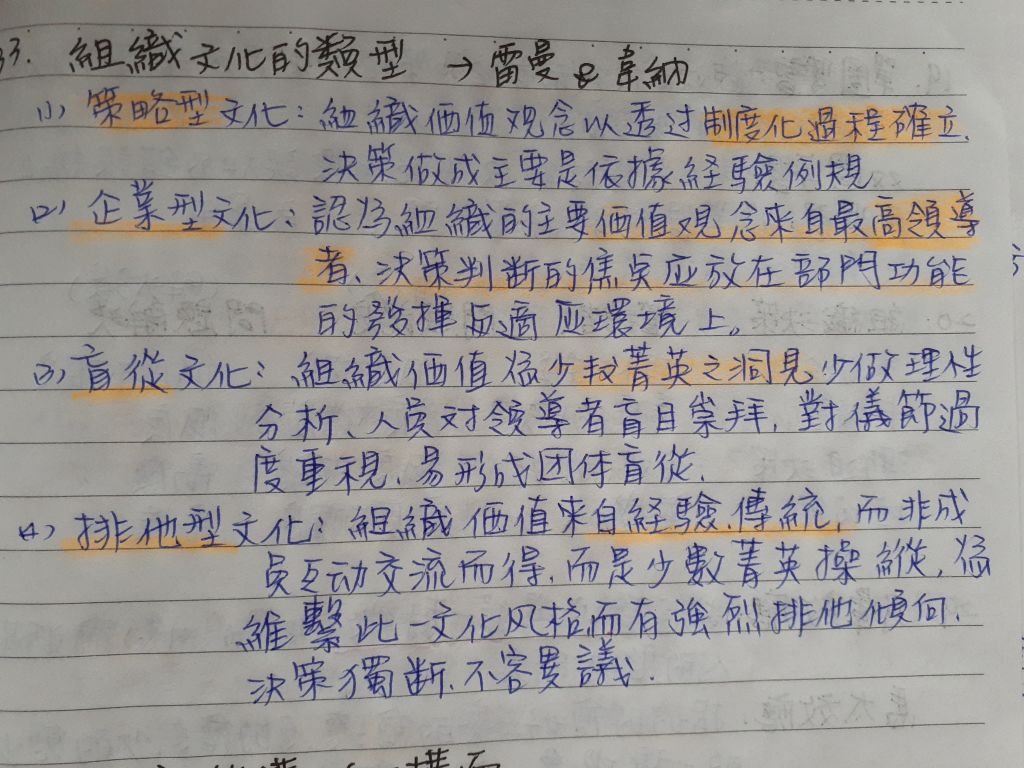 33. 組織文化的類型 → 雷曼 & 韋納
(1) 策略型文化：組織價值观念以透过制度化過程確立.
決策做成主要是依據経驗例規
(2) 企業型文化：認為組織的主要価值观念來自最高領導
者、決策判斷的焦点应放在部門功能
的發揮与適应環境上。
(3) 盲從文化：組織価值係少数菁英之洞見少做理性
分析、人員对領導者盲目崇拜，對儀節過
度重視、易形成团体盲從.
(4) 排他型文化：組織価值來自経驗、傳統，而非成
員互动交流而得，而是少數菁英操縱，為
維繫此一文化风格而有強烈排他傾向.
決策獨斷、不容異議.